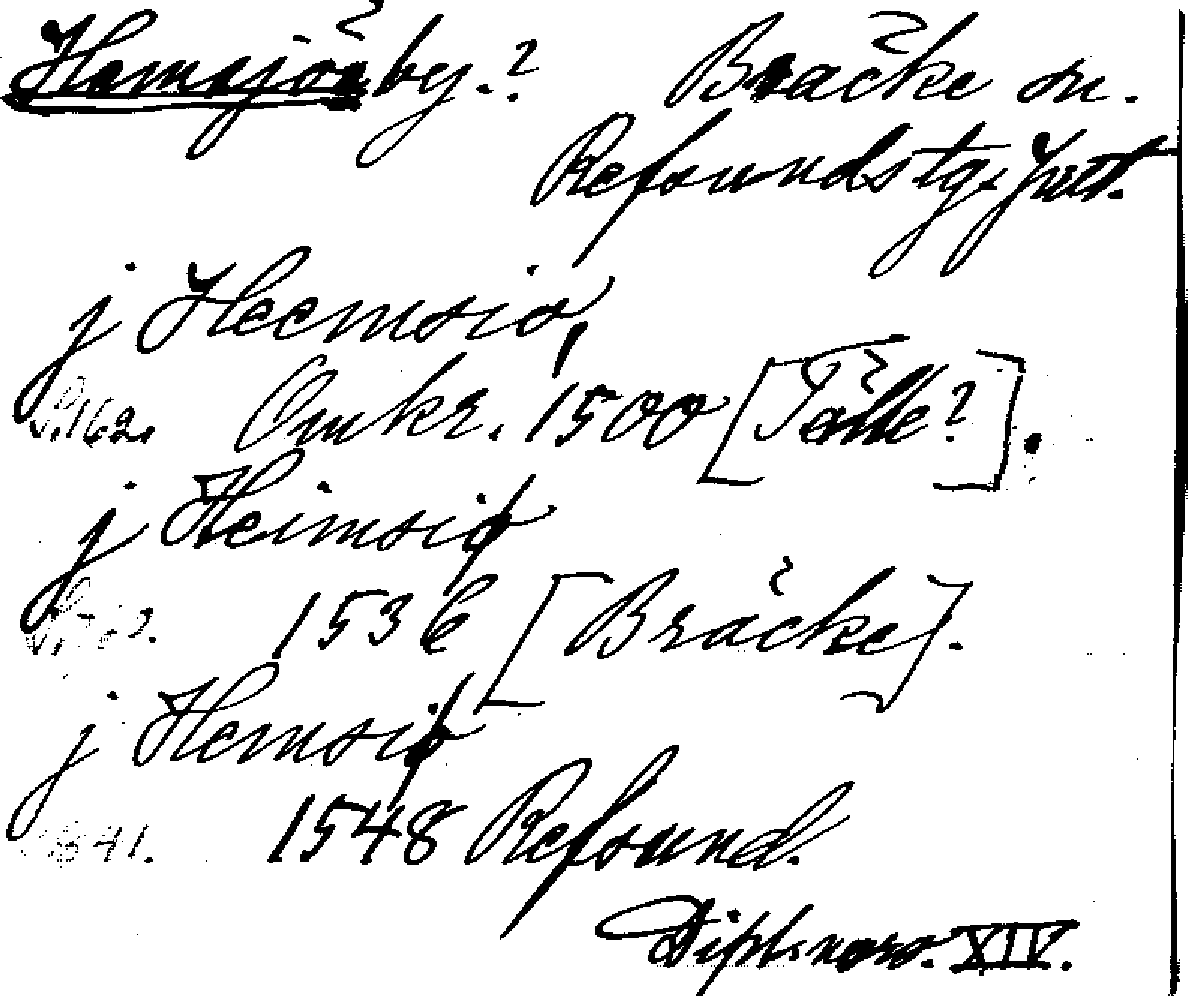 Hemsjön by.? Bräcke sn.
Refsunds tg. Jmtl.
j Heemsio,
S.162. Omkr. 1500 [Tälle?].
j Heimsiø
1536 [Bräcke].
j Hemsiø
841. 1548 Refsund.
Dipl. norv. XIV.